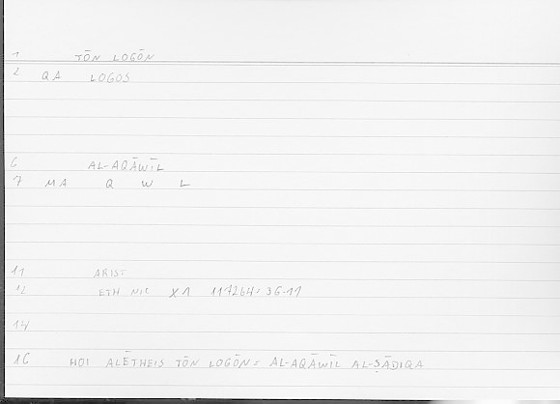 1 TŌN LOGŌN
2 QA LOGOS
6 AL-AQĀWĪL
7 MA Q W L
11 ARIST
12 ETH NIC X1 1172b4: 35.11
14
16 HOI ALĒTHEIS TŌN LOGŌN: AL-AQĀWĪL AL-ṢĀDIQA